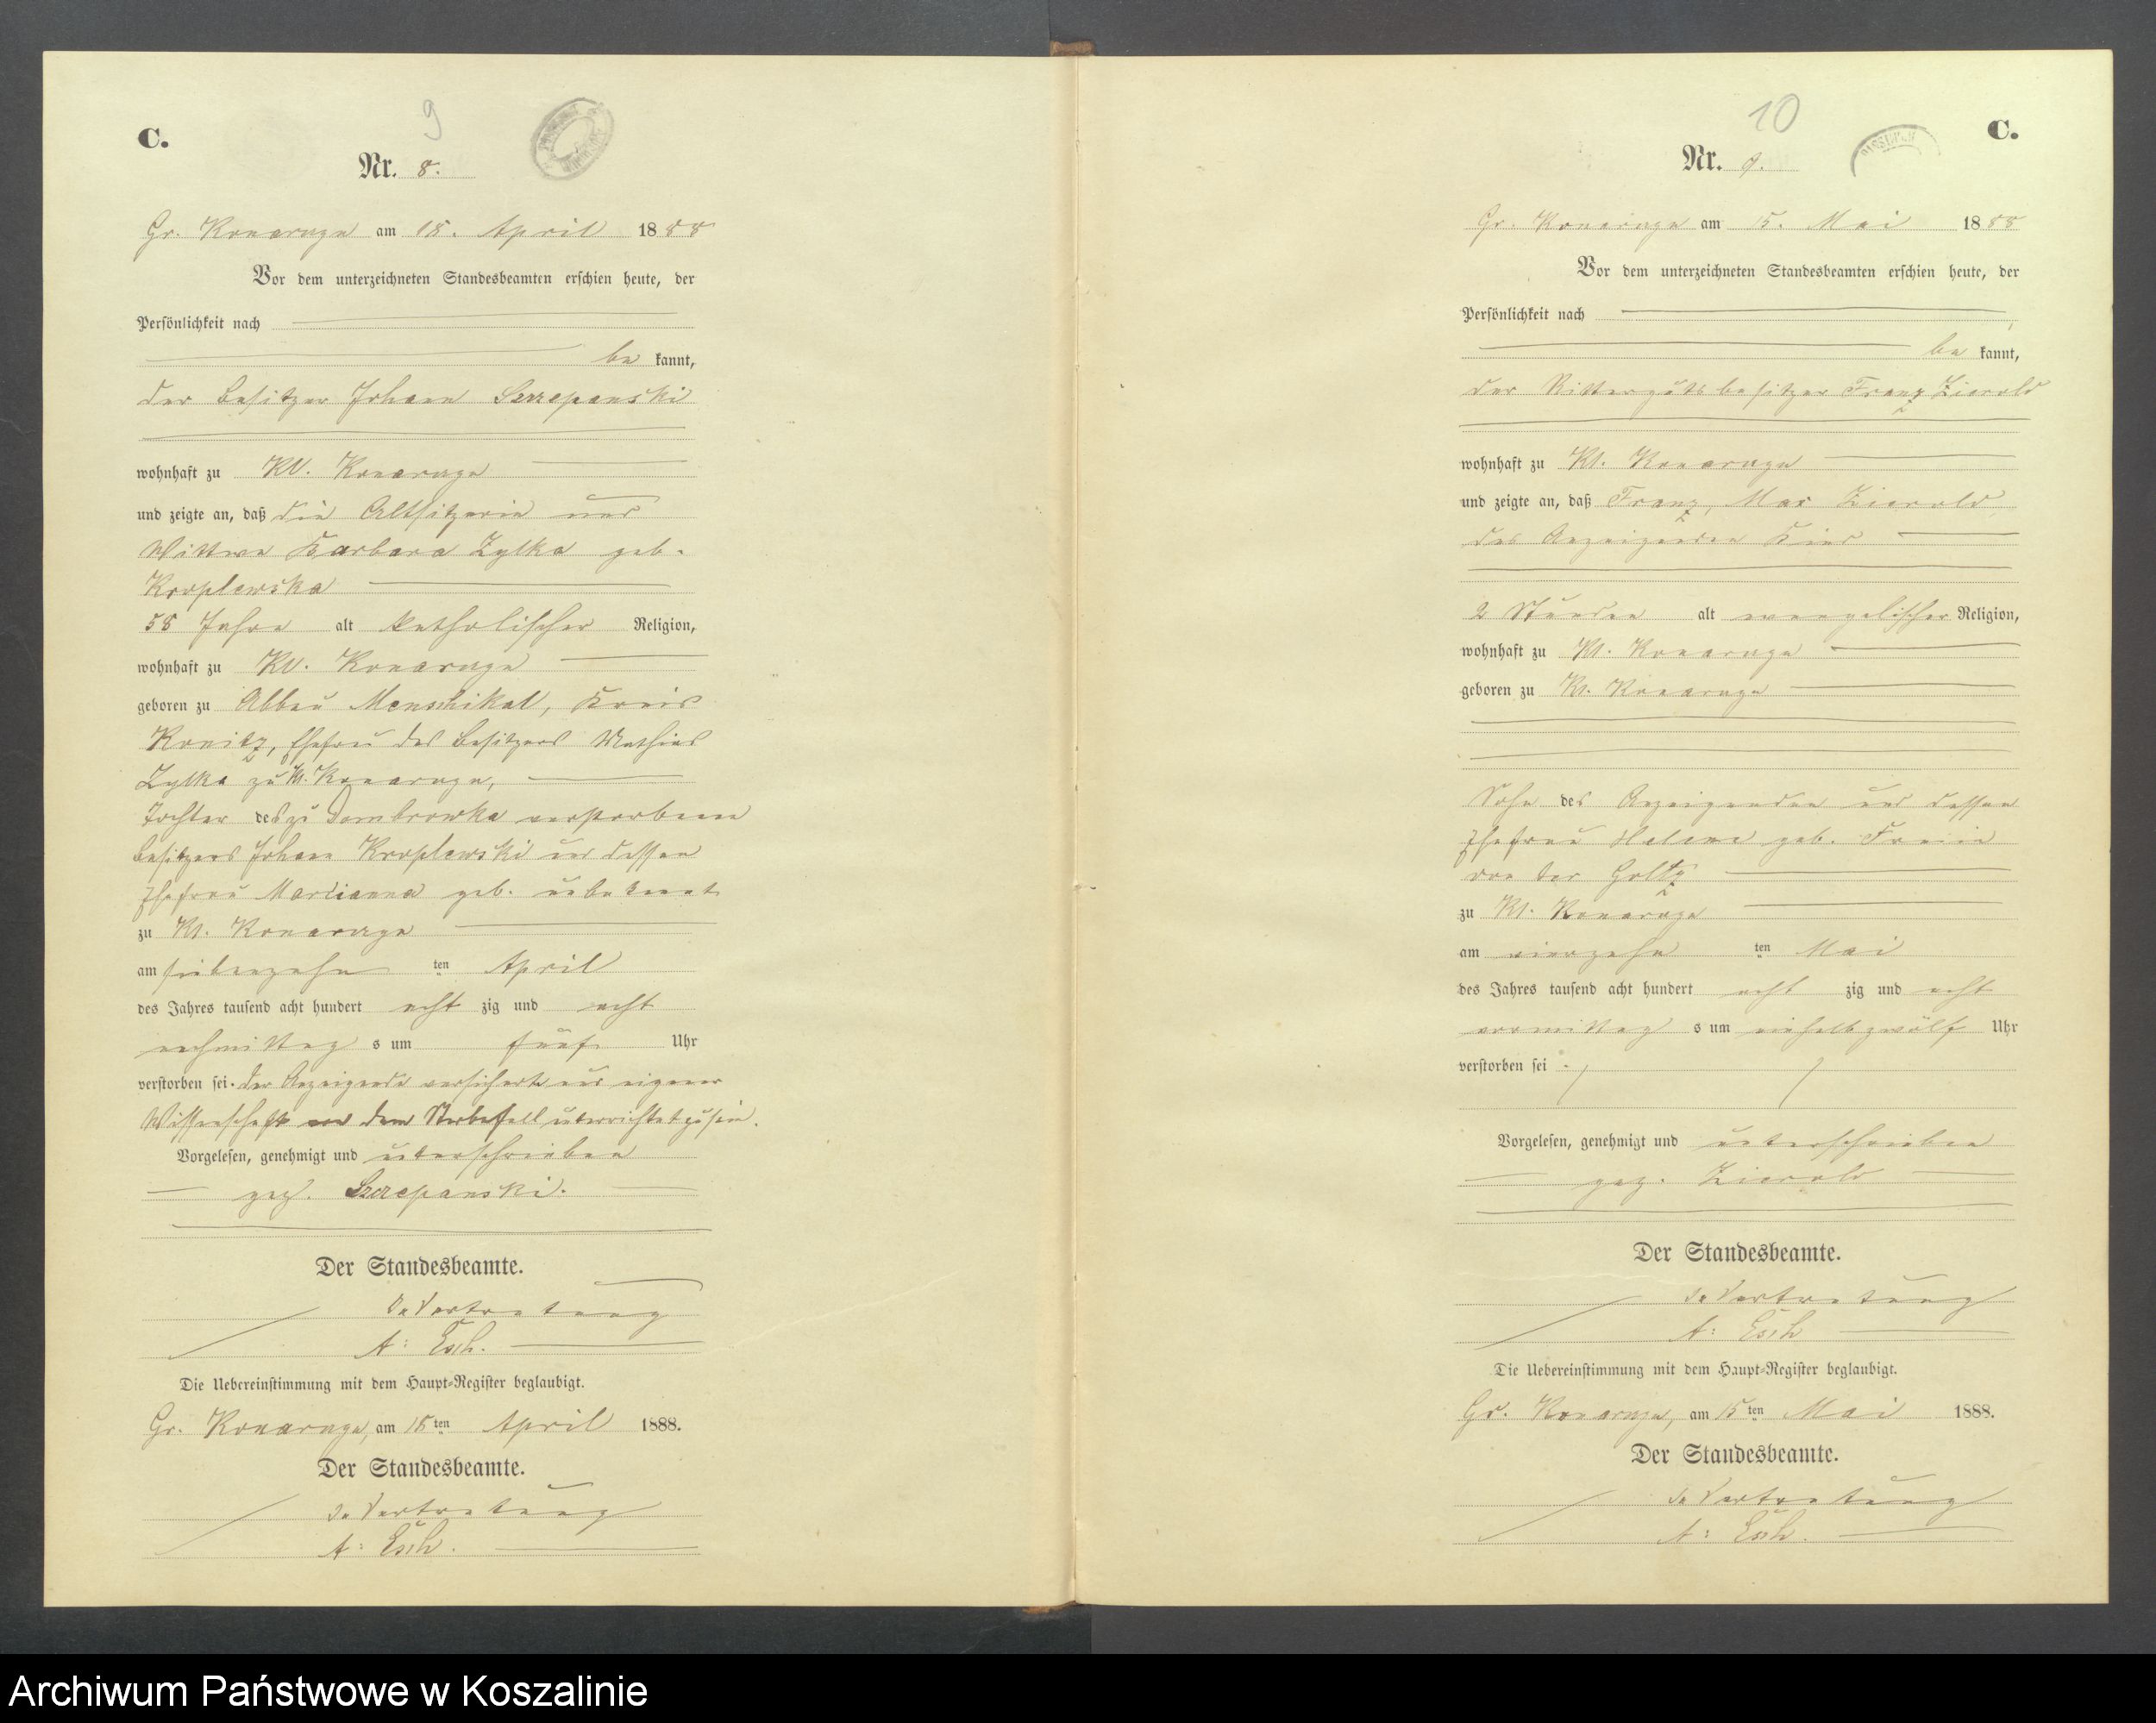 9
C.
Nr. 8.
Gr. Konarczyn am 18. April 1888
Vor dem unterzeichneten Standesbeamten erschien heute, der
Persönlichkeit nach
be kannt,
der Besitzer Johann Szczepanski
wohnhaft zu Kl. Konarczyn
und zeigte an, daß die Altsitzerin und
Wittwe Barbara Zylka geb.
Kroplewska
58 Jahre alt katholischer Religion,
wohnhaft zu Kl. Konarczyn
geboren zu Abbau Menschikal, Kreis
Konitz, Ehefrau des Besitzers Mathias
Zylka zu Kl. Konarczyn,
Tochter des zu Dombrowka verstorbenen
Besitzers Johann Kroplewski und dessen
Ehefrau Marianna geb. unbekannt
zu Kl. Konarczyn
am siebenzehn ten April
des Jahres tausend acht hundert acht zig und acht
nachmittag s um fünf Uhr
verstorben sei. Der Anzeigende versichert aus eigener
Wissenschaft von dem Sterbefall unterrichtet zu sein.
Vorgelesen, genehmigt und unterschrieben
gez. Szczepanski.
Der Standesbeamte.
In Vertretung
A: Esch.
Die Uebereinstimmung mit dem Haupt-Register beglaubigt.
Gr. Konarczyn, am 18 ten April 1888.
Der Standesbeamte.
In Vertretung
A: Esch.
10
C.
Nr. 9.
Gr. Konarczyn am 15. Mai 1888
Vor dem unterzeichneten Standesbeamten erschien heute, der
Persönlichkeit nach
be kannt,
der Rittergutsbesitzer Franz Zierold
wohnhaft zu Kl. Konarczyn
und zeigte an, daß Franz, Max Zierold,
des Anzeigenden Kind
2 Stunden alt evangelischer Religion,
wohnhaft zu Kl. Konarczyn
geboren zu Kl. Konarczyn
Sohn des Anzeigenden und dessen
Ehefrau Helene geb. Freiin
von der Goltz
zu Kl. Konarczyn
am vierzehn ten Mai
des Jahres tausend acht hundert acht zig und acht
vormittag s um einhalb zwölf Uhr
verstorben sei.
Vorgelesen, genehmigt und unterschrieben
gez. Zierold
Der Standesbeamte.
In Vertretung
A: Esch
Die Uebereinstimmung mit dem Haupt-Register beglaubigt.
Gr. Konarczyn, am 15 ten Mai 1888.
Der Standesbeamte.
In Vertretung
A: Esch.
Archiwum Państwowe w Koszalinie